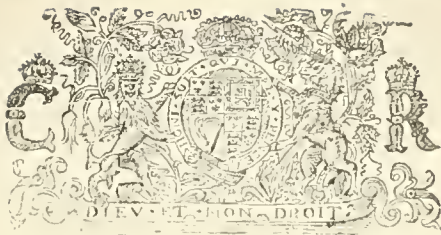 C R
DIEV · ET · MON · DROIT